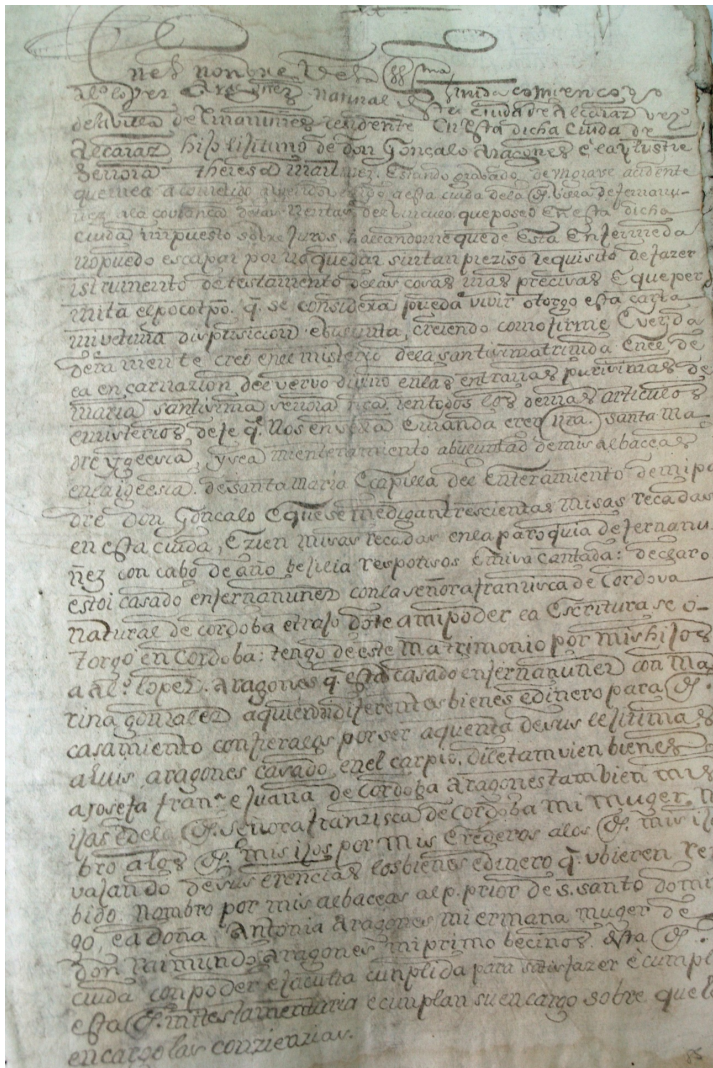 nel nonbre de la SSma
al.º lopez Aragones. natural desta ciuda de Alcaraz vezº
de la villa de fernannunes residente en esta dicha ciuda de
Alcaraz hijo lijitimo de don Gonçalo Aragones e la ylustre
señora theresa martinez. Estando grabado de un grave acidente
que me a acometido a esta ciuda de la villa de fernannu-
nez a la cobranca de las Rentas del binculo que poseo en esta dicha
ciuda impuesto sobre juros, hallandome que de esta enfermeda
no puedo escapar por no quedar sin tan preziso requisito de fazer
istrumento de testamento de las cosas mas precisas e que per
mita el poco tpo. q. se considera pueda vivir otorgo esta carta
mi ultima dispusicion e boluntа, creiendo como firme e verda
dera mente creo en el misterio de la santisima trinida en el de
la encarnazion del vervo divino en las entrañas purisimas de
maria santisima señora nra. en todos los demas articulos
e misterios de fe q. nos enseña e manda creer nra. santa ma
dre ygelesia, y sea mi enteramiento a boluntad de mis albaceas
en la igelesia de santa Maria e capilla del Enteramiento de mi pa
dre don Gonçalo e que se me digan trescientas misas recadas
en esta ciuda, e zien misas recadas en la paroquia de fernannu
ñez con cabo de año bijilia respotisos e misa cantada: declaro
estoi casado en fernannunez con la señora franzisca de Cordova
natural de cordoba e trajo dote a mi poder la Escritura se o-
torgo en Cordoba: tengo de este matrimonio por mis hijos
a al.º lopez. Aragones q. esta casado en fernannunez con ma
rina gonzalez a quien di ferentes bienes e dinero para
casamiento confieralos por ser a quenta de sus lejitimas
a luis, aragones casado, en el carpio, di le tamvien bienes
a Josefa fran.ª e Juana de Cordoba Aragones tambien mis
ijas e de la señora franzisca de Cordoba mi muger. n
bro a los mis ijos por mis erederos a los mis ijo
vajando de sus erencias los bienes e dinero q. ubieren re
bido. nombro por mis albaceas al p. prior de s. santo domi
go, e a doña, Antonia Aragones mi ermana muger de
don Raimundo Aragones mi primo becinos. desta
ciuda con poder e facultа cunplida para satisfazer e cumpl
esta mi testamentaria e cunplan su encargo sobre que l
encargo las conzienzias.
85